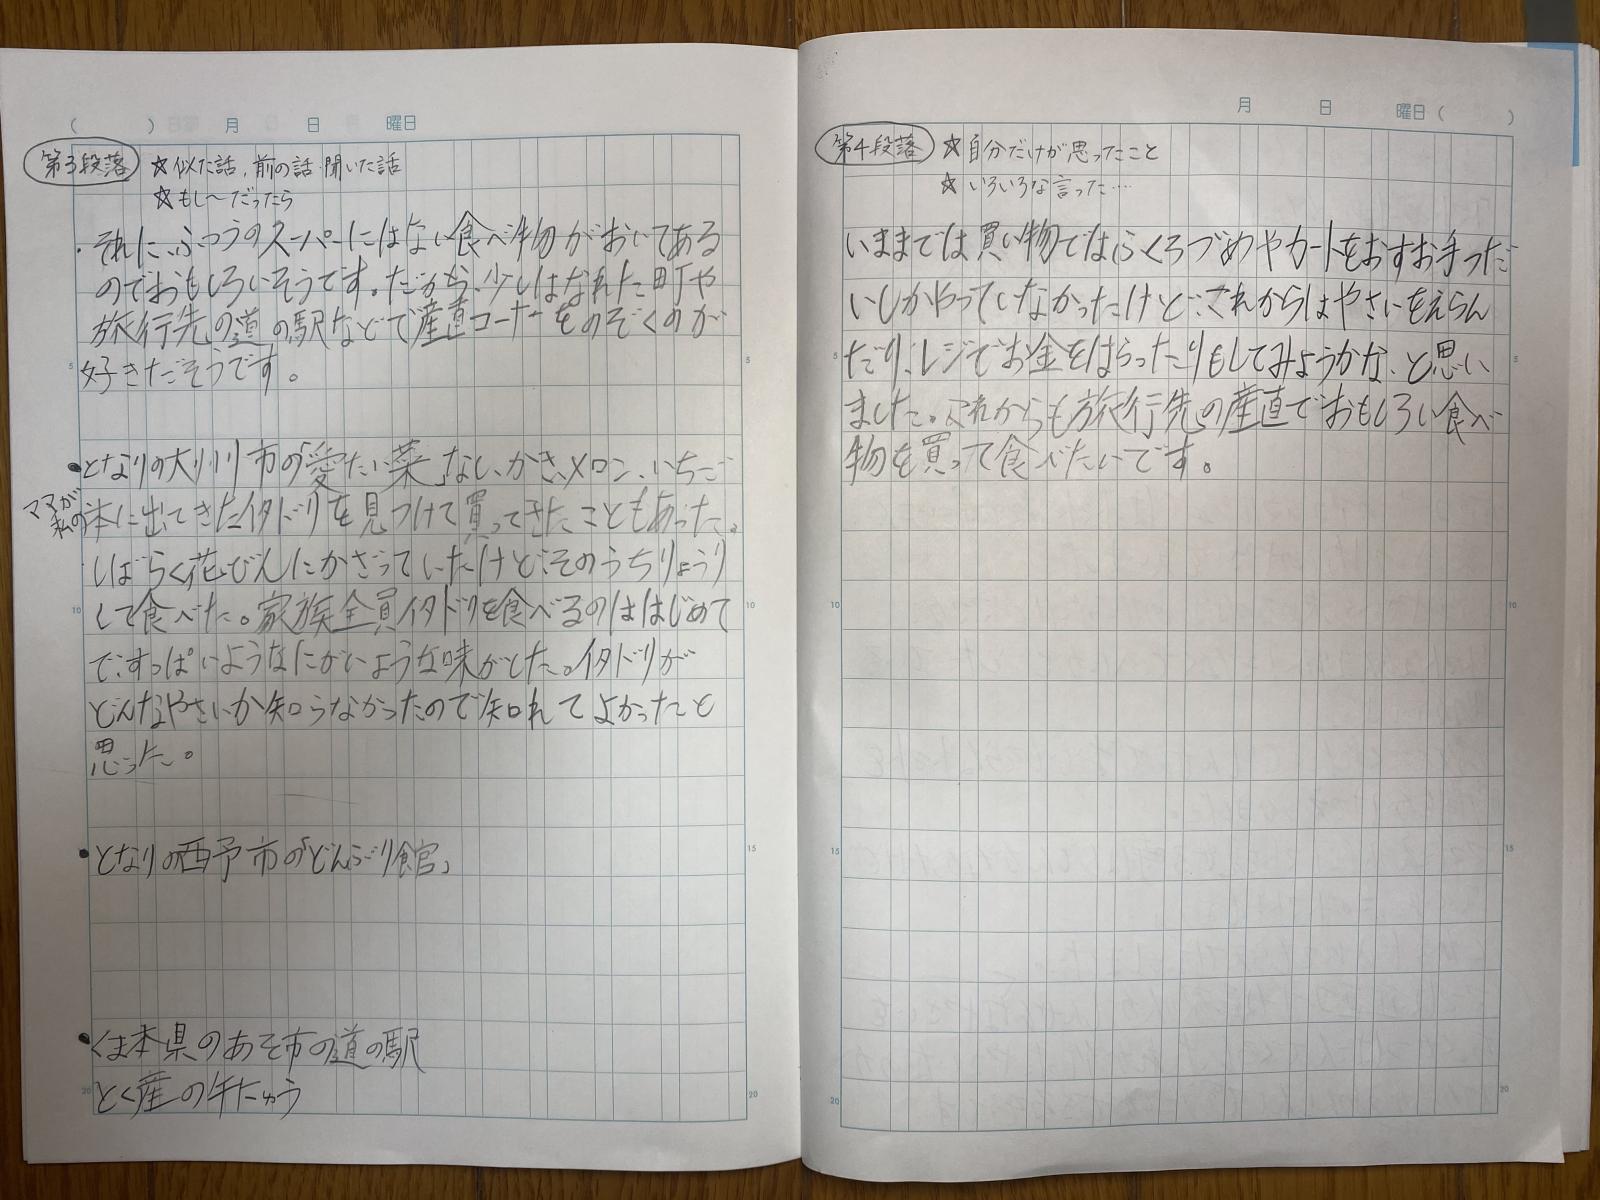 ( ) 月 日 曜日
第3段落 ☆似た話、前の話・聞いた話
☆もし〜だったら
・それに、ふつうのスーパーにはない食べ物がおいてある
のでおもしろいそうです。だから、少しはなれた町や
旅行先の道の駅などで産直コーナーをのぞくのが
5 好きだそうです。 5
●となりの大川市の「愛たい菜」なし、かき、メロン、いちご
ママが、私の本に出てきたイタドリを見つけて買ってきたこともあった。
しばらく花びんにかざっていたけど、そのうちりょうり
10 して食べた。家族全員イタドリを食べるのははじめて 10
で、すっぱいようなにがいような味がした。イタドリが
どんなやさいか知らなかったので知れてよかったと
思った。
●となりの西予市の「どんぶり館」 15
●くま本県のあそ市の道の駅
20 とく産の牛にゅう 20
月 日 曜日 ( )
第4段落 ☆自分だけが思ったこと
☆いろいろな言った…
いままでは買い物ではふくろづめやカートをおすお手つだ
いしかやっていなかったけど、これからはやさいをえらん
5 だり、レジでお金をはらったりもしてみようかな、と思い 5
ました。これからも旅行先の産直でおもしろい食べ
物を買って食べたいです。
10 10
15 15
20 20